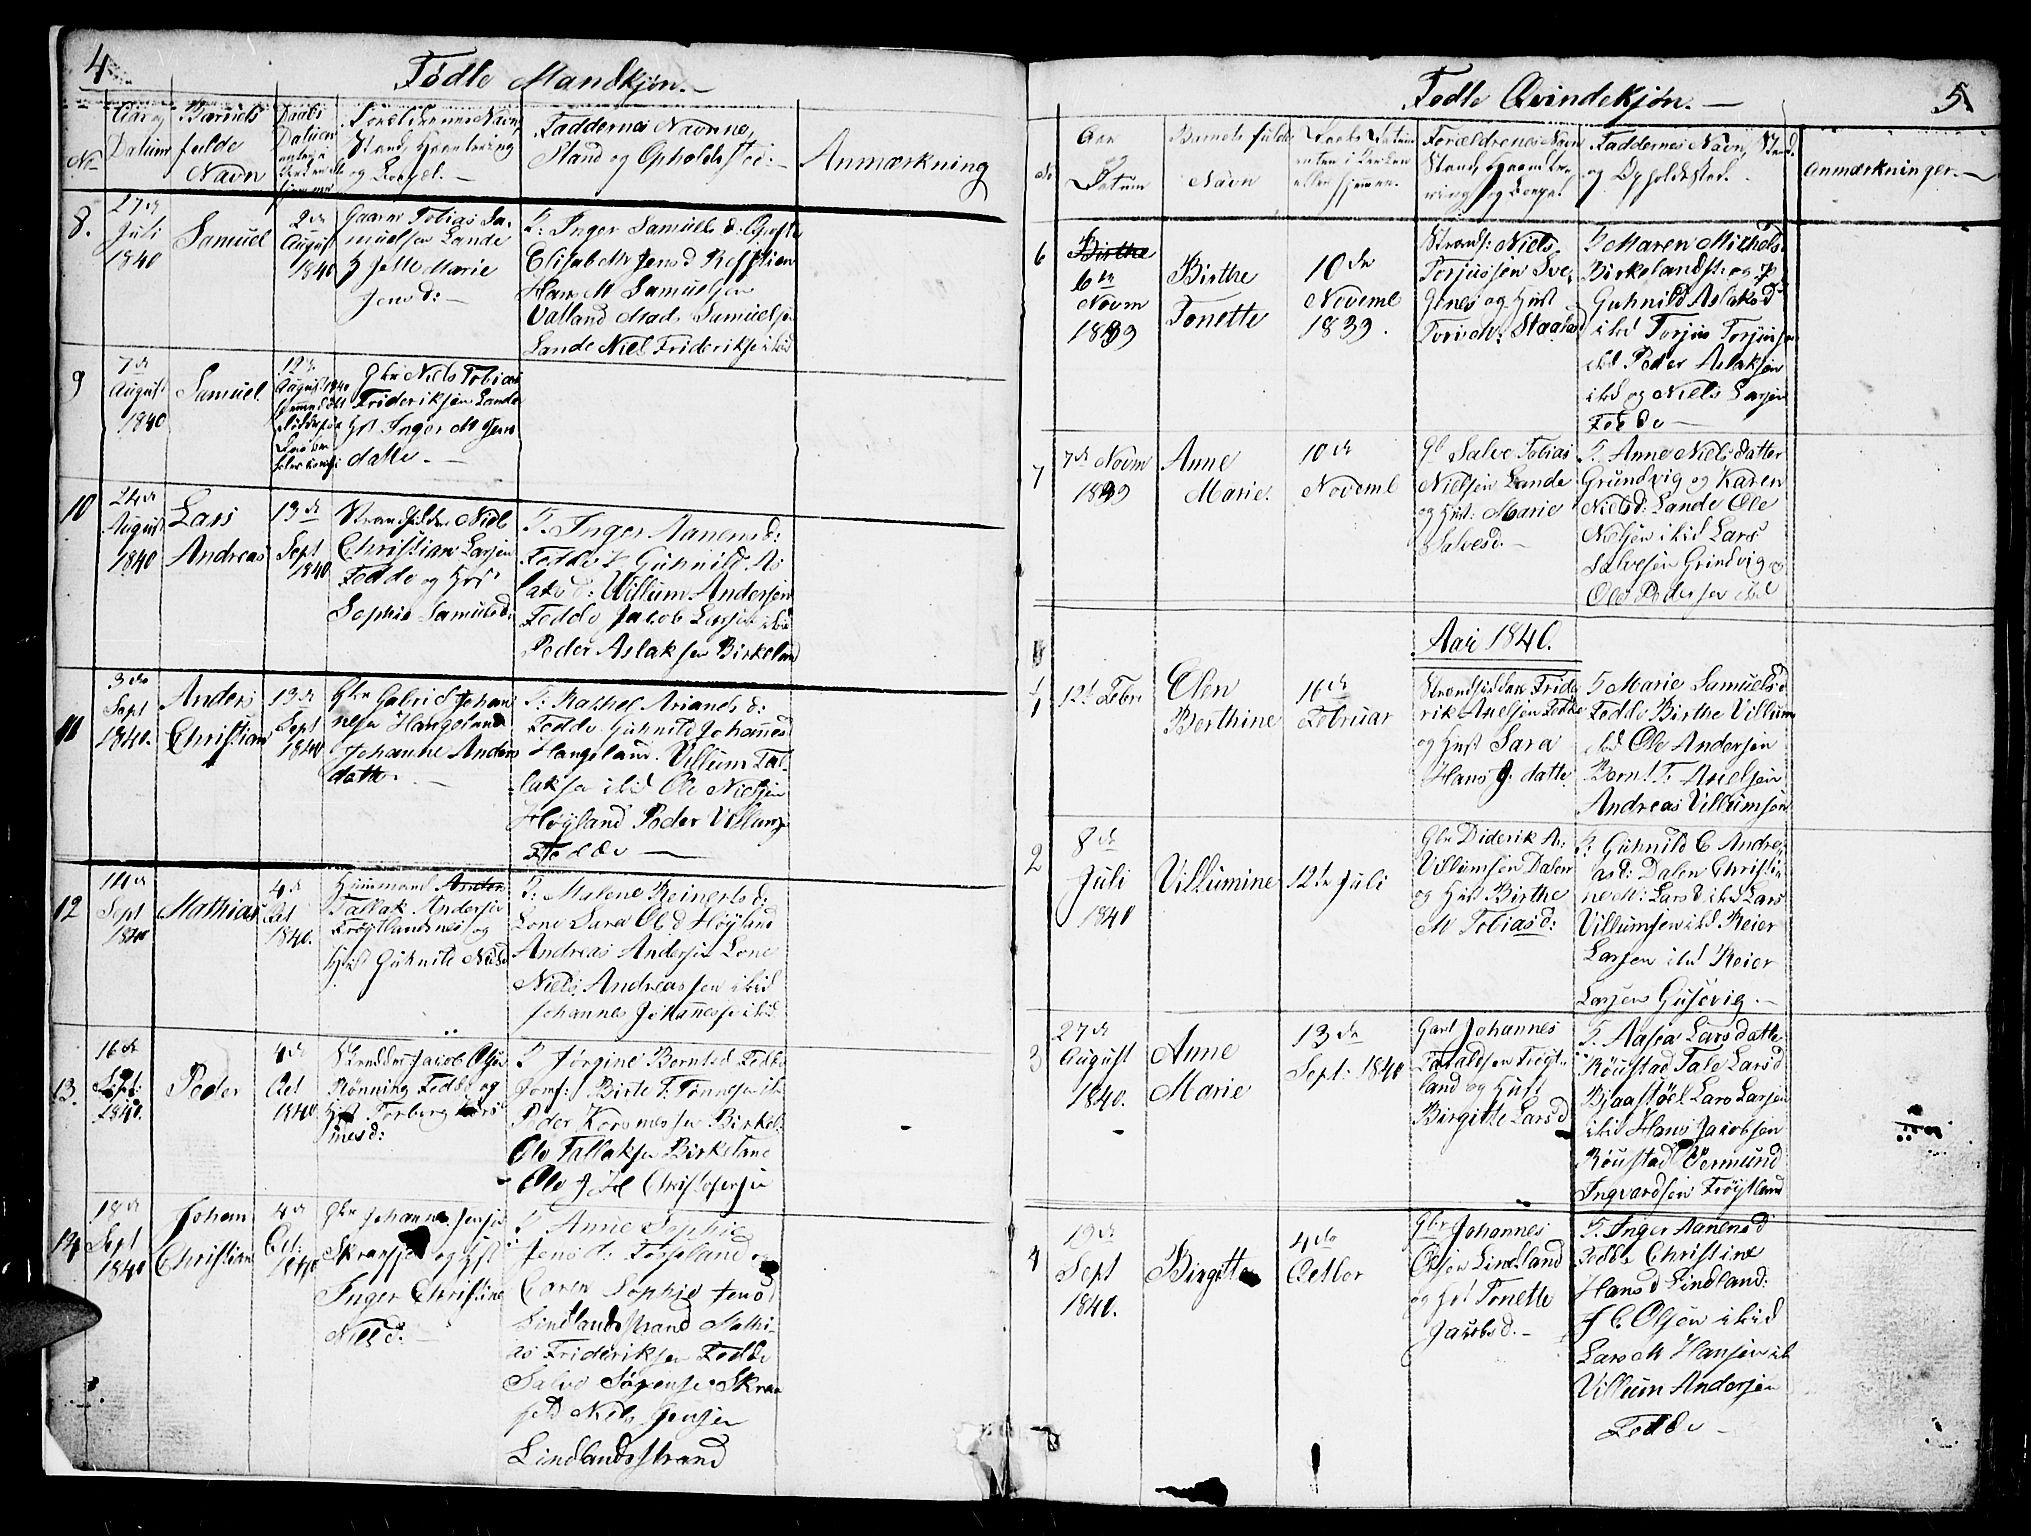 4
Fødte Mandkjøn.
No
Aar og
Datum
Barnets
fulde
Navn
Daabs
Datum
Forældrenes Navn,
Stand, Haandtering
og Bopæl.
Faddernes Navne,
Stand og Opholdsted.
Anmærkning
8.
27de
Juli
1840
Samuel
2de
August
1840
Gaarm Tobias Sa-
muelsen Lande
Marie
Jensd:
F: Inger Samuels d:
Elisabeth Jensd
Hans M Samuelsen
Valland Mads Samuelsen
Lande Niel Frideriksen ibid
9
7de
August
1840
Samuel
12te
August 1840
Gbr Niels Tobias
Frideriksen Lande
Hst Inger M Jens
datte.
10
24de
August
1840
Lars
Andreas
13de
Sept
1840
Strandsidder Niels
Christian Larsen
Fedde og Hst
Sophie Samuelsd:
F. Inger Aanensd:
Fedde F Guhnild As
laksd: Villum Andersen
Fedde Jacob Larsen ibid
Peder Aslaksen Birkeland
11
3die
Sept
1840.
Anders
Christian
13de
Sept
1840
Gbr Gabriel Johan
nesen Hangeland
Johanne Anders
datte.
F: Rachel Arianes d:
Fedde Guhnild Johannes
Hangeland. Villum Tal-
laksen ibid Ole Nielsen
Høyland Peder Villums
Fedde
12
14de
Sept
1840
Mathias
4de
Oct
1840.
Huusmand Ander
Tallak Andersen
Frøytlandsnes og
Hst Guhnild Nielsd
F: Malene Reinertsd:
Lone Sara Olsd Høyland
Andreas Andersen Lone
Niels Andreassen ibid
Johannes Johannesse ibid
13.
16de
Sept:
1840.
Peder
4de
Oct
1840.
Skredder Jacob Olsen
Rønning Fedde og
Hst Torberg Kors
nesd:
F Jørgine Berntsd Fedde
Jomf: Birte F. Tønnesen ib
Peder Korsnessen Birkel:
Ole Tallaksen Birkeland
Ole J H Christofersen
14
18de
Sept
1840
Johan
Christian
4de
Oct:
1840
Gbr Johannes Jensen
og Hst
Inger Christine
Nielsd.
F Anne Sophie
Jensd: og
Caren Sophie Jensd
Lindlandsstrand Mathi-
as Frideriksen Fedde
Salve Sørensen Skran
Niels Jensen
Lindlandsstrand
5.
Fødte Qvindekjøn.
No
Aar
Datum
Barnets fulde
Navn
Daabs Datum
enten i Kirken
eller hjemme.
Forældrenes Navn
Stand, Haandte-
ring og Bopæl.
Faddernes Navn, Stand
og Opholdsted.
Anmærkninger.
6
Birthe
6te
Novm
1839
Birthe
Tonette
10de
Noveml
1839.
Strands: Niels
Torjussen Sve-
genes og Hust
F Maren Michels
Birkelandst: og
Guhnild Aslaksd
ibid Torjus Torjusen
ibid Peder Aslaksen
ibid og Niels Larsen
Fedde
7
7de Novm
1839
Anne
Marie.
10de
Noveml
Gb Salve Tobias
Nielsen Lande
og Hust: Marie
Salvesd.
F. Anne Nielsdatter
Grundvig og Karen
Nielsd: Lande Ole
Nielsen ibid Lars
Salvesen Grindvig og
Ole Pedersen ibid
Aar 1840.
1
12t Febr
Elen
Berthine
16de
Februar
Strandsidder Fride
rik Axelsen Fedde
og Hust Sara
Hans J: datte.
F Marie Samuelsd
Fedde Birthe Villum
ibid Ole Andersen
Bernt T. Axelsen
Andreas Villumsen
2
8de
Juli
1840
Villumine
12te Juli
Gbr Diderik A:
Villumsen Dalen
og Hust Birthe
M Tobiasd:
F: Guhnild C Andre-
asd: Dalen Christi-
ne M: Larsd ibid Lars
Villumsen ibid Reier
Larsen ibid Reier
Larsen Gusevig.
3
27de
August
1840.
Anne
Marie
13de
Sept: 1840
Gaml Johannes
Frøyt-
land og Hust
Birgitte Larsd
F. Aasea Larsdatte
Røustad Tale Larsd
Bjaastøel. Lars Larsen
ibid Hans Jacobsen
Røustad Vermund
Ingvardsen Frøytland
4
19de
Sept
1840.
Birgitte
4de
Octbr
Gbr Johannes
Olsen Lindland
og Hst Tonette
Jacobsd.
F. Inger Aanensd
Fedde Christine
Hansd Lindland:
J C. Olsen ibid
Lars M Hansen ib
Villum Andersen
Fedde